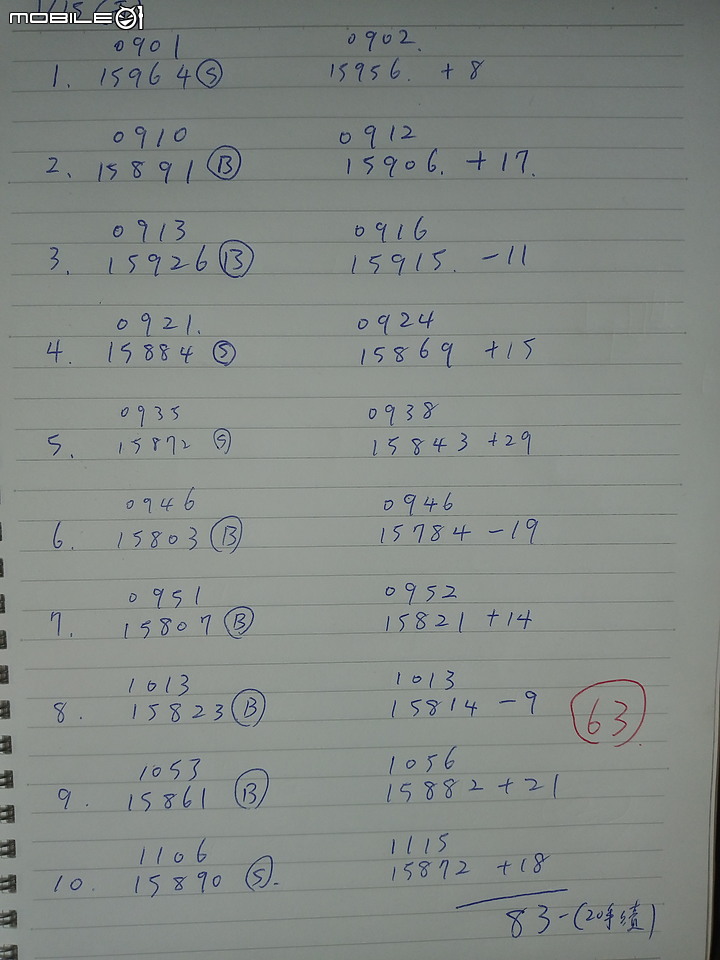 1/15
MOBILE01
0901 0902.
1. 15964 Ⓢ 15956. +8
0910 0912
2. 15891 Ⓑ 15906. +17.
0913 0916
3. 15926 Ⓑ 15915. -11
0921. 0924
4. 15884 Ⓢ 15869 +15
0935 0938
5. 15872 Ⓢ 15843 +29
0946 0946
6. 15803 Ⓑ 15784 -19
0951 0952
7. 15807 Ⓑ 15821 +14
1013 1013
8. 15823 Ⓑ 15814 -9
63
1053 1056
9. 15861 Ⓑ 15882 +21
1106 1115
10. 15890 Ⓢ. 15872 +18
83-(20手續)